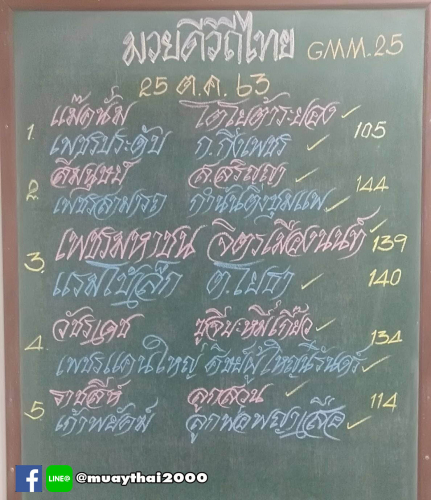 มวยดีวิถีไทย GMM-25
25 ต.ค. 63
1. แม็ดนั่ม โตโยต้าระยอง 105
เพชรประดับ ก.กิ่งเพชร
2. สีมนุษย์ ส.สริญญา 144
เพชรสามารถ กำนันตึงชุมแพ
3. เพชรมหาชน จิตรเมืองนนท์ 139
แรมโบ้เล็ก ต.โยธา 140
4. วัชรเดช ชูเจริญหมี่เกี๊ยว 134
เพชรแดนใหญ่
5. ราชสีห์ ลูกสวน 114
เก้าพยัคฆ์ ลูกพ่อพญาเสือ
LINE@ @muaythai2000